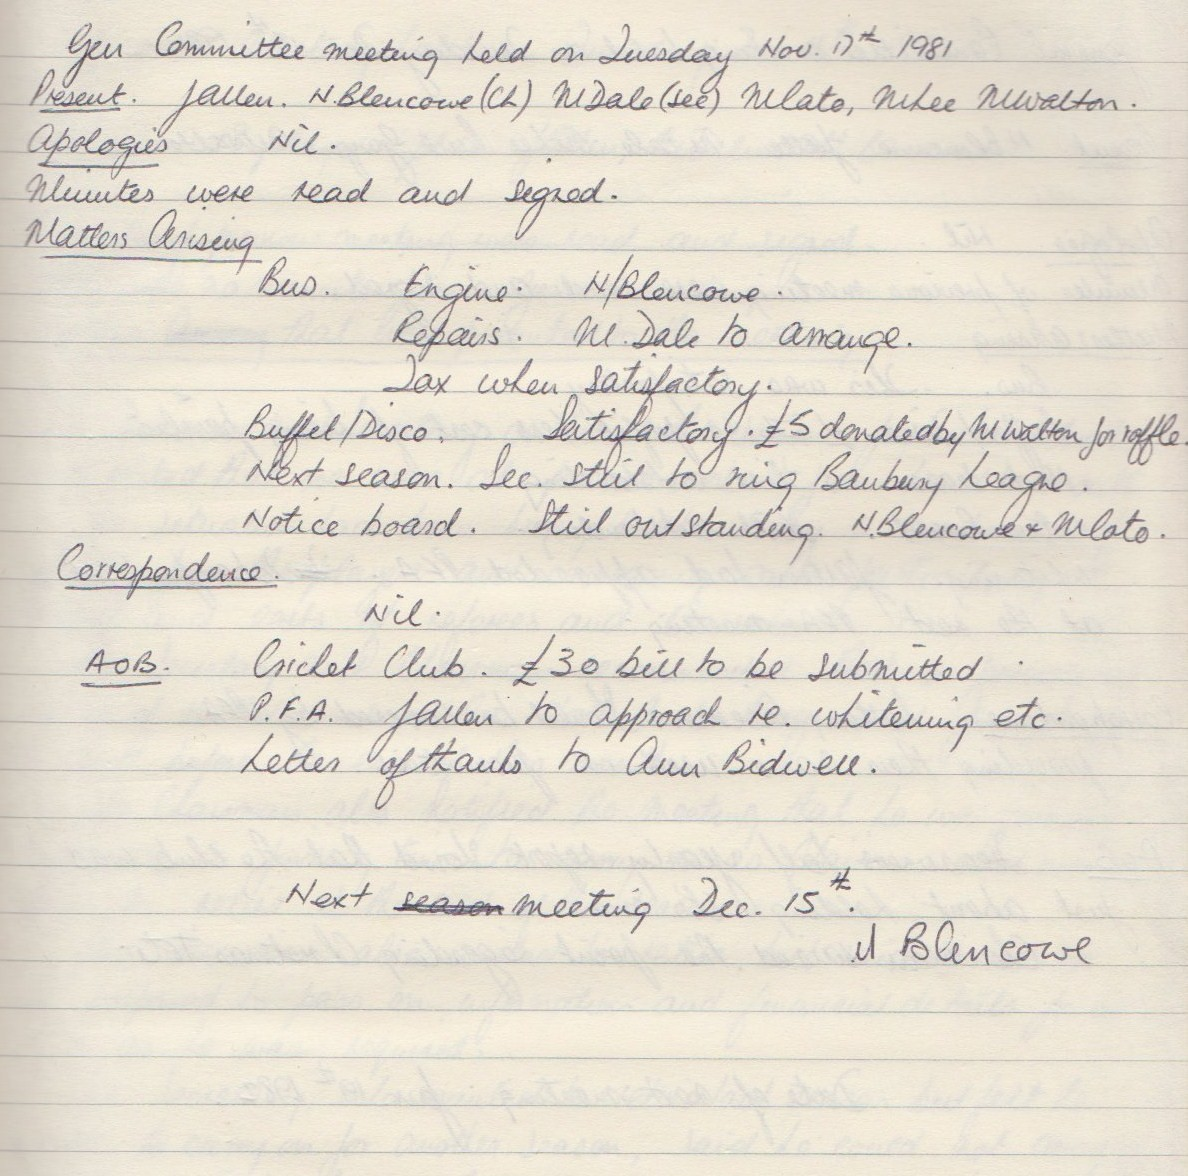 Gen Committee meeting held on Tuesday Nov. 17th 1981
Present. J Allen. N. Blencowe (Ch) M Dale (Sec) M Cato, M Lee M Walton.
Apologies Nil.
Minutes were read and signed.
Matters Arising
Bus. Engine. N/Blencowe.
Repairs. M. Dale to arrange.
Tax when satisfactory.
Buffet/Disco. Satisfactory. £5 donated by M Walton for raffle.
Next season. Sec. still to ring Banbury League.
Notice board. Still outstanding. N. Blencowe + M Cato.
Correspondence.
Nil.
AOB. Cricket Club. £30 bill to be submitted
P.F.A. J Allen to approach re. whitening etc.
Letter of thanks to Ann Bidwell.
Next season meeting Dec. 15th.
N Blencowe